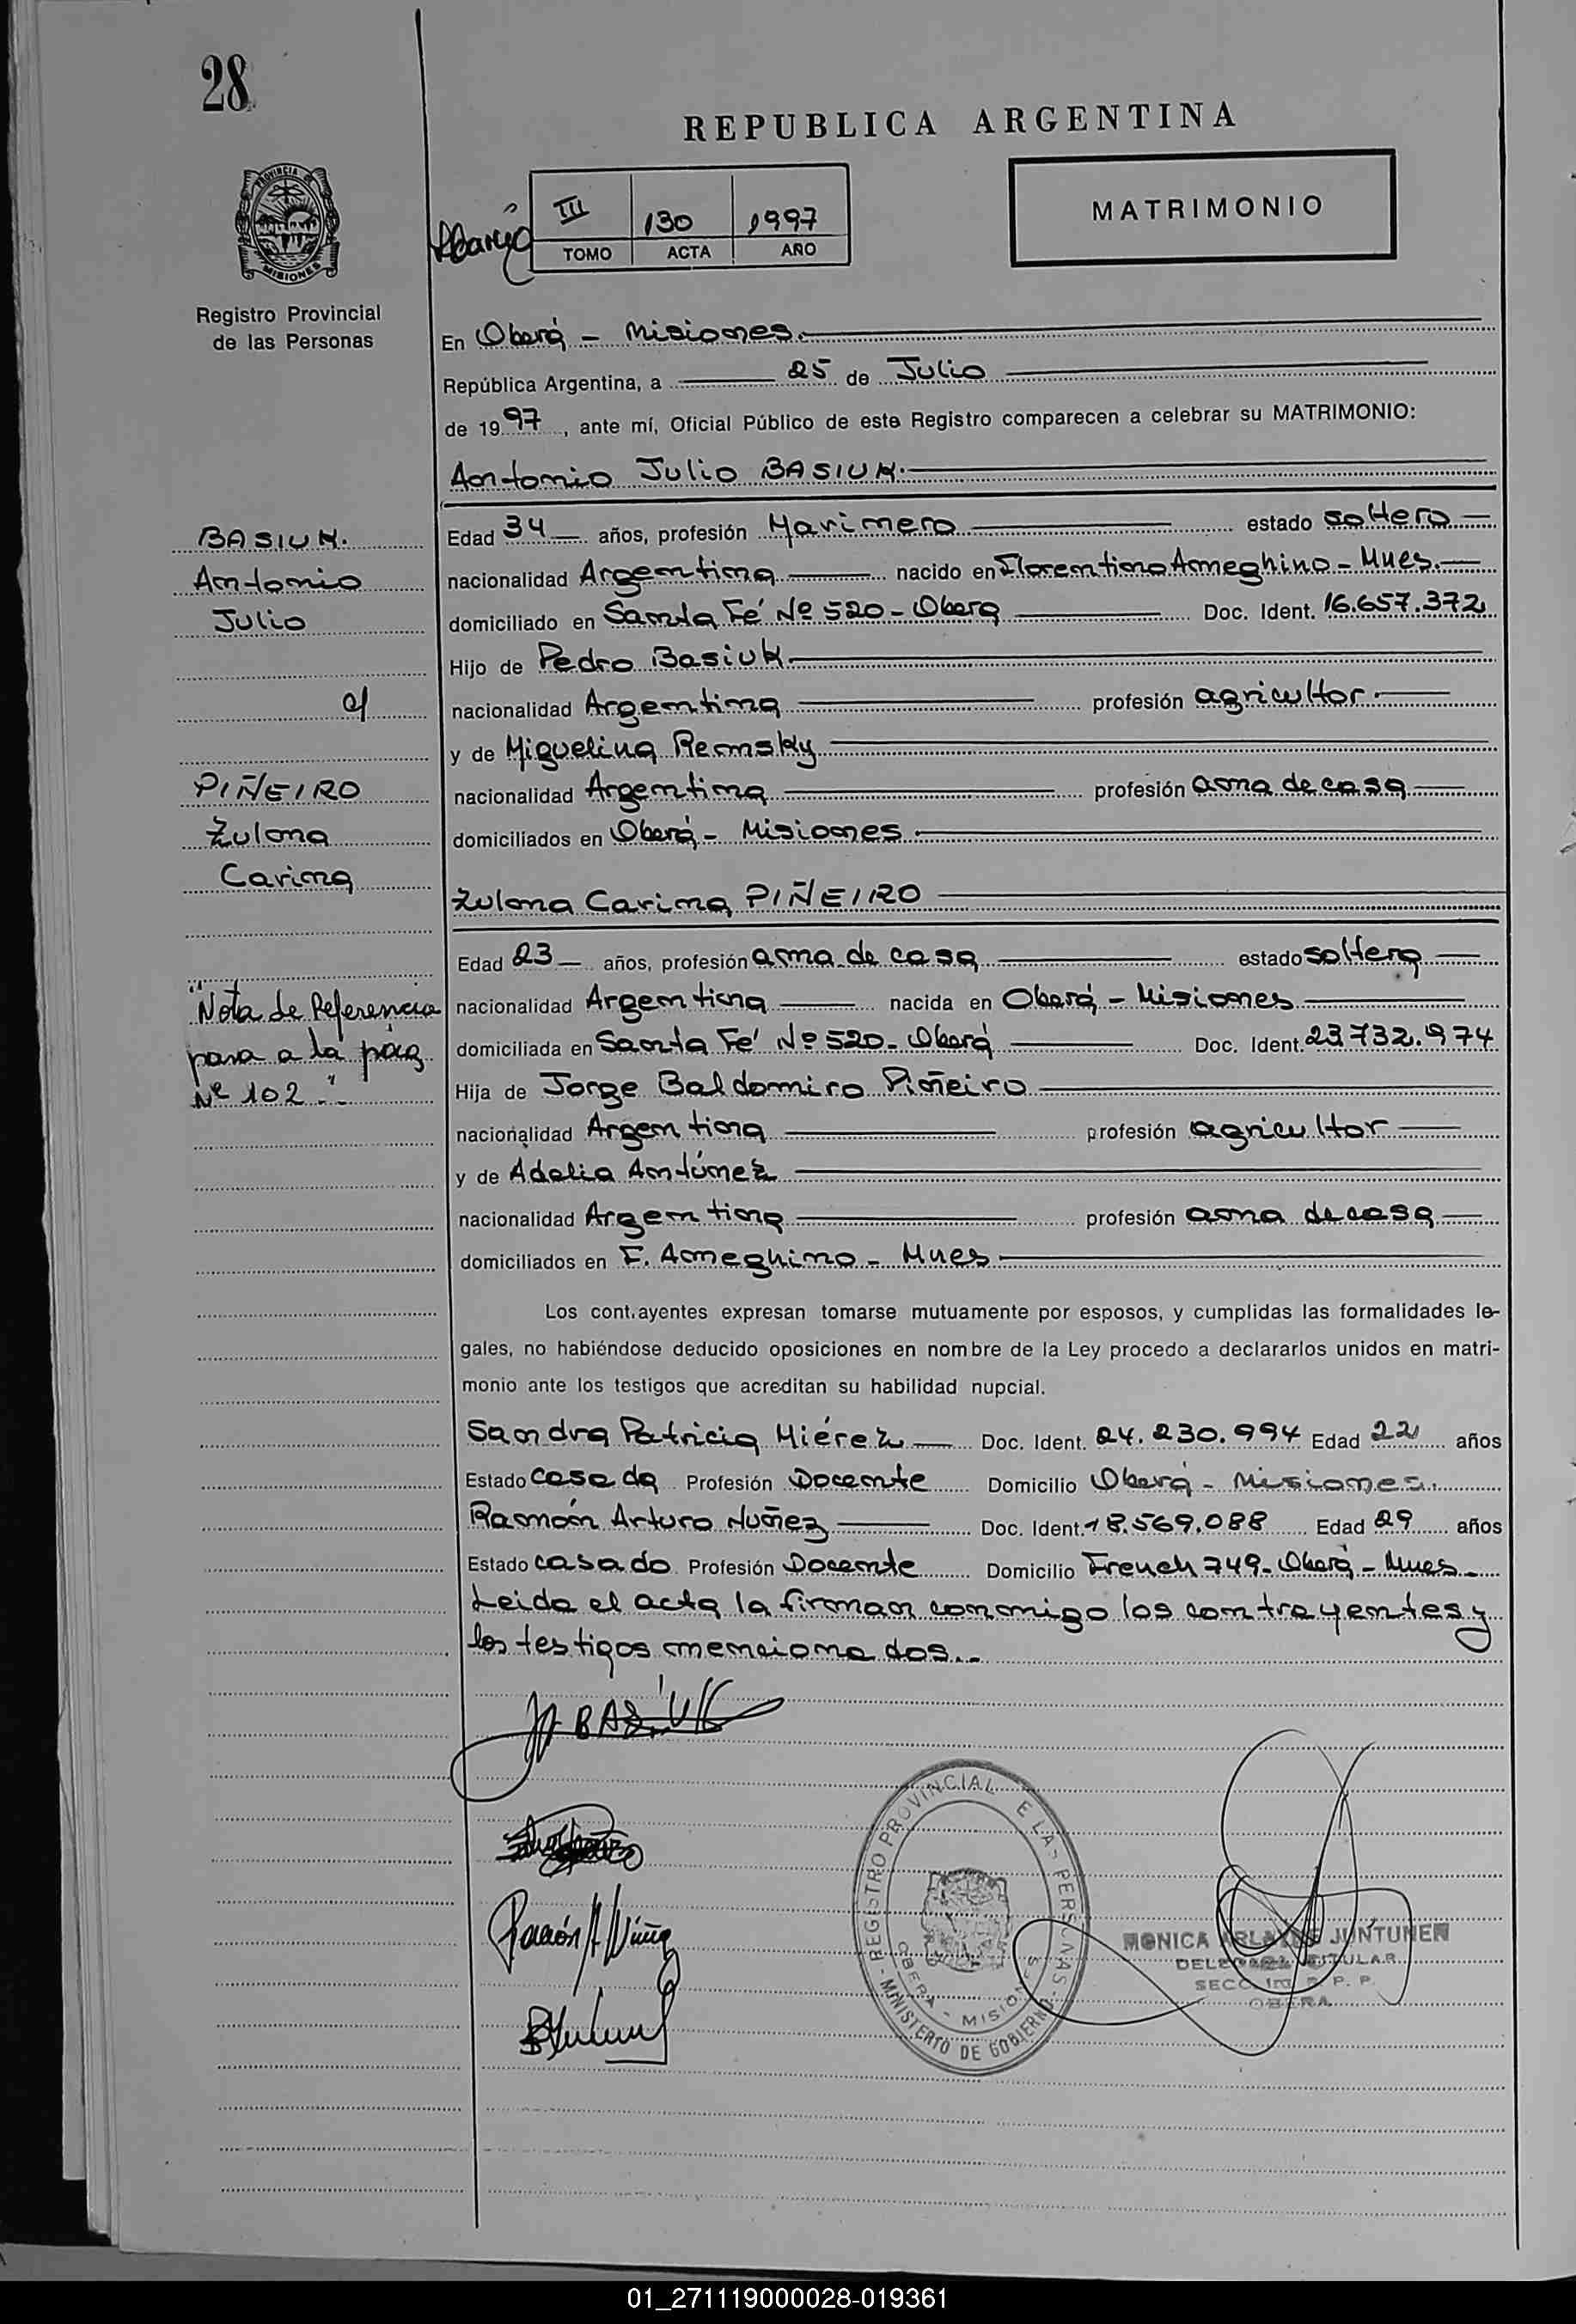 28
REPUBLICA ARGENTINA
III 130 1997
TOMO ACTA AÑO
MATRIMONIO
PROVINCIA
MISIONES
Registro Provincial
de las Personas
En Oberá - Misiones.
República Argentina, a 25 de Julio
de 1997, ante mí, Oficial Público de este Registro comparecen a celebrar su MATRIMONIO:
Antonio Julio BASIUK.
BASIUK.
Antonio
Julio
c/
PIÑEIRO
Zulma
Carina
"Nota de Referencia
pasa a la pág
Nº 102"..
Edad 34 años, profesión Marinero estado soltero
nacionalidad Argentina nacido en Florentino Ameghino - Mnes.
domiciliado en Santa Fé Nº 520 - Oberá Doc. Ident. 16.657.372
Hijo de Pedro Basiuk
nacionalidad Argentina profesión agricultor.
y de Miguelina Remsky
nacionalidad Argentina profesión ama de casa
domiciliados en Oberá - Misiones.
Zulma Carina PIÑEIRO
Edad 23 años, profesión ama de casa estado soltera
nacionalidad Argentina nacida en Oberá - Misiones
domiciliada en Santa Fé Nº 520 - Oberá Doc. Ident. 23.732.974
Hija de Jorge Baldomiro Piñeiro
nacionalidad Argentina profesión agricultor
y de Adelia Antúnez
nacionalidad Argentina profesión ama de casa
domiciliados en F. Ameghino - Mnes
Los cont.ayentes expresan tomarse mutuamente por esposos, y cumplidas las formalidades le-
gales, no habiéndose deducido oposiciones en nombre de la Ley procedo a declararlos unidos en matri-
monio ante los testigos que acreditan su habilidad nupcial.
Sandra Patricia Miérez Doc. Ident. 24.230.994 Edad 22 años
Estado casada Profesión Docente Domicilio Oberá - Misiones.
Ramón Arturo Nuñez Doc. Ident. 18.569.088 Edad 29 años
Estado casado Profesión Docente Domicilio French 749 - Oberá - Mnes
Leida el acta la firman conmigo los contrayentes y
los testigos mencionados..
BASIUK
REGISTRO PROVINCIAL E LAS PERSONAS
OBERA - MISIONES
MINISTERIO DE GOBIERNO
MONICA JUNTUNEN
DELEGADA TITULAR
OBERA
01_271119000028-019361